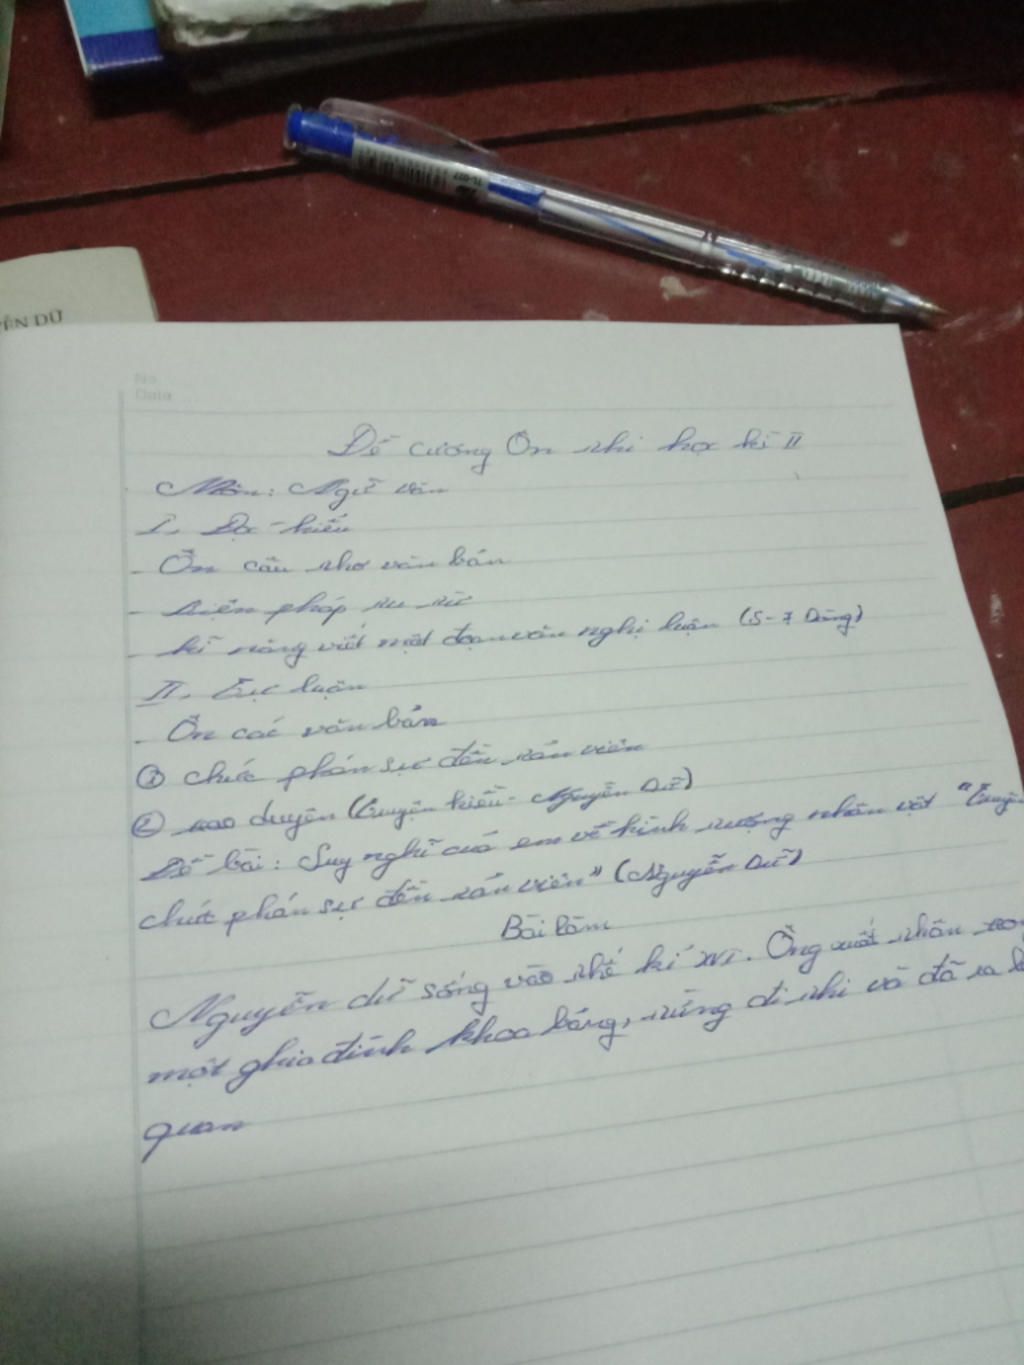 YỄN DỮ
No.
Date
TL-027
Đề cương Ôn thi học kì II
Môn: Ngữ văn
I, Đọc-hiểu
- Ôn câu thơ văn bản
- Biện pháp tu từ
- kĩ năng viết một đoạn văn nghị luận (5-7 Dòng)
II, Tự luận
- Ôn các văn bản
① chức phán sự đền tản viên
② trao duyên (truyện kiều - Nguyễn Dữ)
Đề bài: Suy nghĩ của em về hình tượng nhân vật "Truyện
chức phán sự đền tản viên" (Nguyễn Dữ)
Bài làm
Nguyễn dữ sống vào thế kỉ XVI. Ông xuất thân
một ghia đình khoa bảng, từng đi thi và đã ra
quan